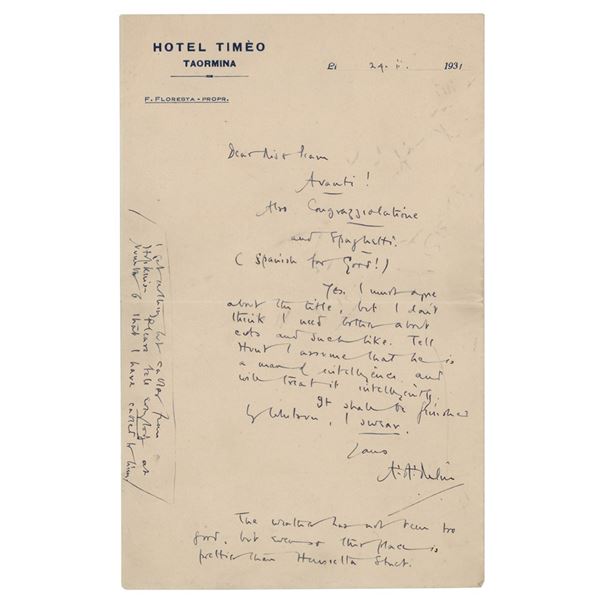 HOTEL TIMÈO
TAORMINA
F. FLORESTA - PROPR.
li 24. ii. 1931
Dear Miss Pearn
Avanti!
Also Congrazziolatione
and Spaghetti.
(Spanish for Good!)
Yes, I must agree
about the title, but I don't
think I need bother about
cuts and such like. Tell
Hunt I assume that he is
a man of intelligence and
will treat it intelligently.
It shall be finished
by Whitsun, I swear.
Yours
A.A. Milne
The weather has not been too
good, but even so this place is
prettier than Henrietta Street.
I get nothing but cables from
please tell
that I have cabled to
him